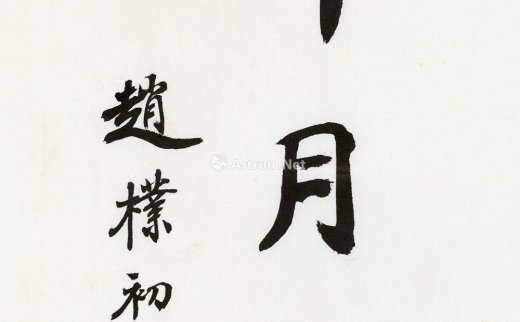 月
趙樸初
Artron.Net